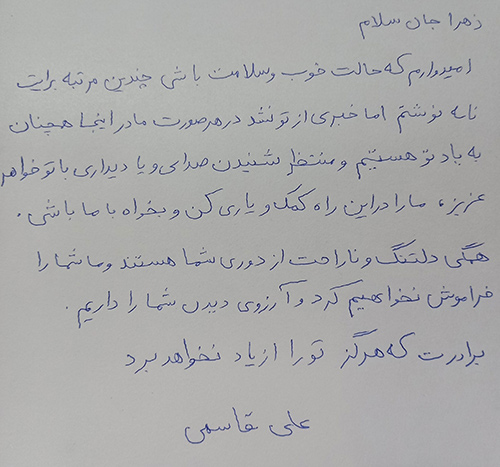 زهرا جان سلام
امیدوارم که حالت خوب و سلامت باشی چندین مرتبه برایت
نامه نوشتم اما خبری از تو نشد در هر صورت ما در اینجا همچنان
به یاد تو هستیم و منتظر شنیدن صدای و یا دیداری با تو خواهر
عزیز، ما را در این راه کمک و یاری کن و بخواه با ما باشی.
همگی دلتنگ و ناراحت از دوری شما هستند و ما شما را
فراموش نخواهیم کرد و آرزوی دیدن شما را داریم.
برادرت که هرگز تو را از یاد نخواهد برد
علی قاسمی